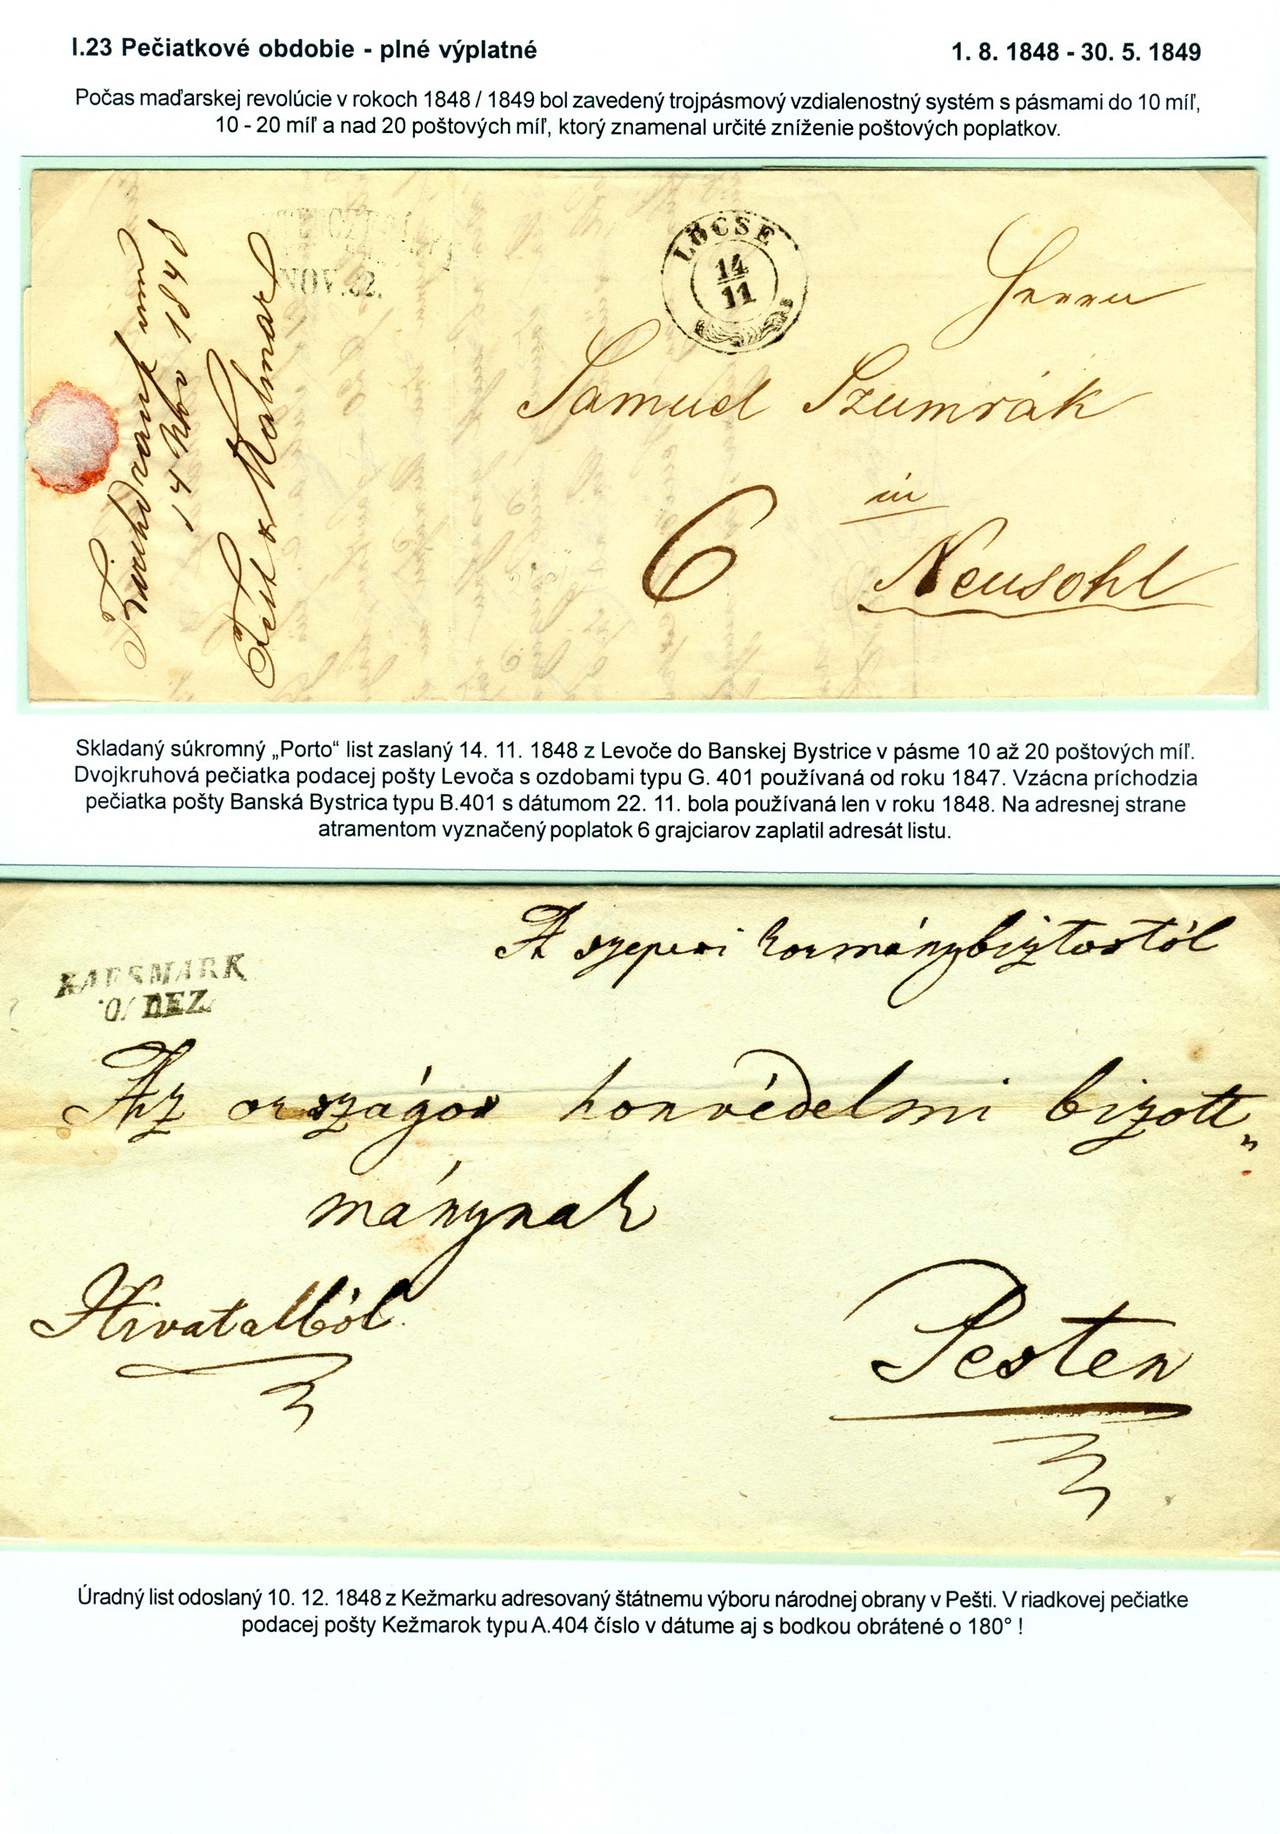 I.23 Pečiatkové obdobie - plné výplatné
1. 8. 1848 - 30. 5. 1849
Počas maďarskej revolúcie v rokoch 1848 / 1849 bol zavedený trojpásmový vzdialenostný systém s pásmami do 10 míľ,
10 - 20 míľ a nad 20 poštových míľ, ktorý znamenal určité zníženie poštových poplatkov.
14 Nov 1848
NOV. 22.
LÖCSE
14
11
Herrn
Samuel Szumrák
in
6
Neusohl
Skladaný súkromný „Porto“ list zaslaný 14. 11. 1848 z Levoče do Banskej Bystrice v pásme 10 až 20 poštových míľ.
Dvojkruhová pečiatka podacej pošty Levoča s ozdobami typu G. 401 používaná od roku 1847. Vzácna príchodzia
pečiatka pošty Banská Bystrica typu B.401 s dátumom 22. 11. bola používaná len v roku 1848. Na adresnej strane
atramentom vyznačený poplatok 6 grajciarov zaplatil adresát listu.
A szepesi kormánybiztostól
KAESMARK
'0/ DEZ.
Az országos honvédelmi bizott„
mánynak
Hivatalból
Pesten
Úradný list odoslaný 10. 12. 1848 z Kežmarku adresovaný štátnemu výboru národnej obrany v Pešti. V riadkovej pečiatke
podacej pošty Kežmarok typu A.404 číslo v dátume aj s bodkou obrátené o 180° !